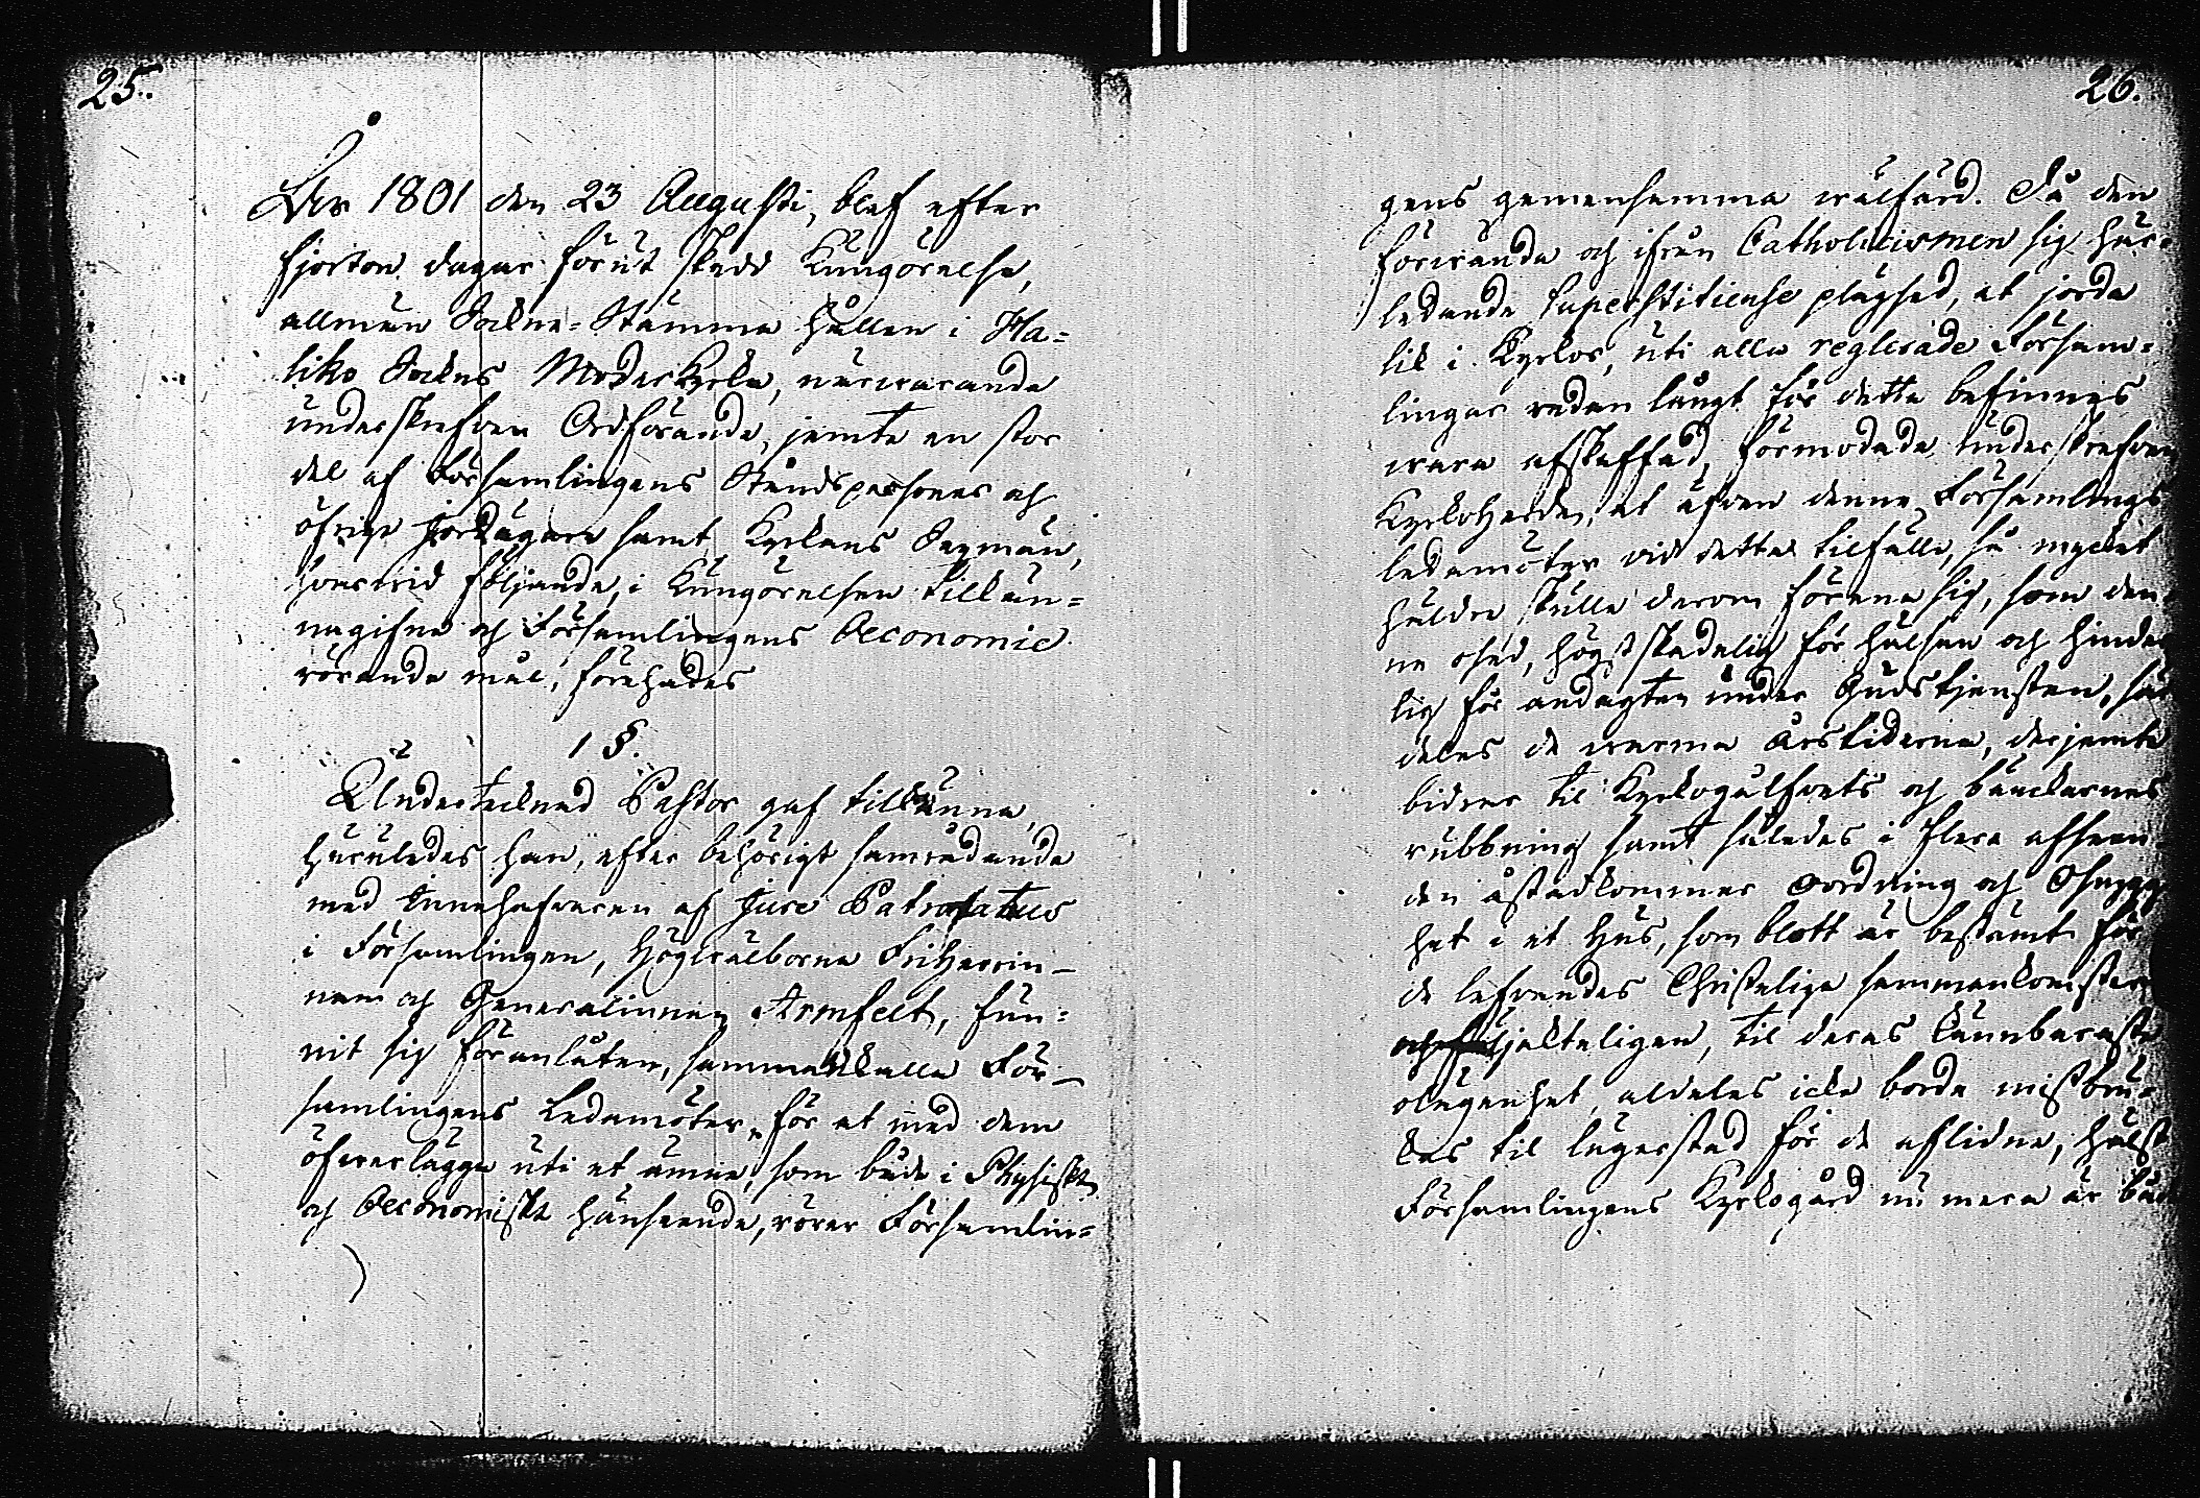 25.
År 1801 den 23 Augusti, blef efter
fjorton dagar förut skedd Kungörelse,
allmän Sockne-Stämma hållen i Ha=
liko Sockens Moderkyrka, närwarande
underskrefven Ordförande, jemte en stor
del af Församlingens Ståndspersoner och
öfrige Jordägare samt Kyrkans Sexmän,
hvarwid följande, i Kungörelsen tillkän=
nagifne och Församlingens Oeconomie
rörande mål, förehades
1 §.
Undertecknad Pastor gaf tillkänna,
huruledes han, efter behörigt samrådande
med Innehafvaren af Jure Patronatus
i Församlingen, Högwälborna Friherrin-
nan och Generalinnan Armfelt, fun=
nit sig föranlåten, sammankalla För-
samlingens Ledamöter, för at med dem
öfverlägga uti et ämne, som både i Physiskt
och Oeconomiskt hänseende, rörer Församlin=
26.
gens gemensamma wälfärd. Då den
förwända och ifrån Catholicismen sig här=
ledande superstitieuse plägsed, at jorda
lik i Kyrkor, uti alla reglerade Försam=
lingar redan långt för detta befinnes
wara afskaffad, förmodade underskrefven
Kyrkoherde, at äfven denne Församlings
ledamöter vid detta tilfälle, så mycket
häldre skulle derom förena sig, som den=
ne osed, högst skadelig för hälsan och hinder
lig för andagten under Gudstjensten, sär
deles de warma årstiderna, derjemte
bidrar til Kyrkogolfvets och bänckarnes
rubbning samt således i flera afseen
den åstadkommer oordning och Osnygg
het i et Hus, som blott är bestämt för
de lefvandes Christeliga sammankomster
sjelteligen, til deras kännbaraste
olägenhet, aldeles icke borde missbru=
kas til lägerstad för de aflidne, hälst
Församlingens Kyrkogård nu mera är